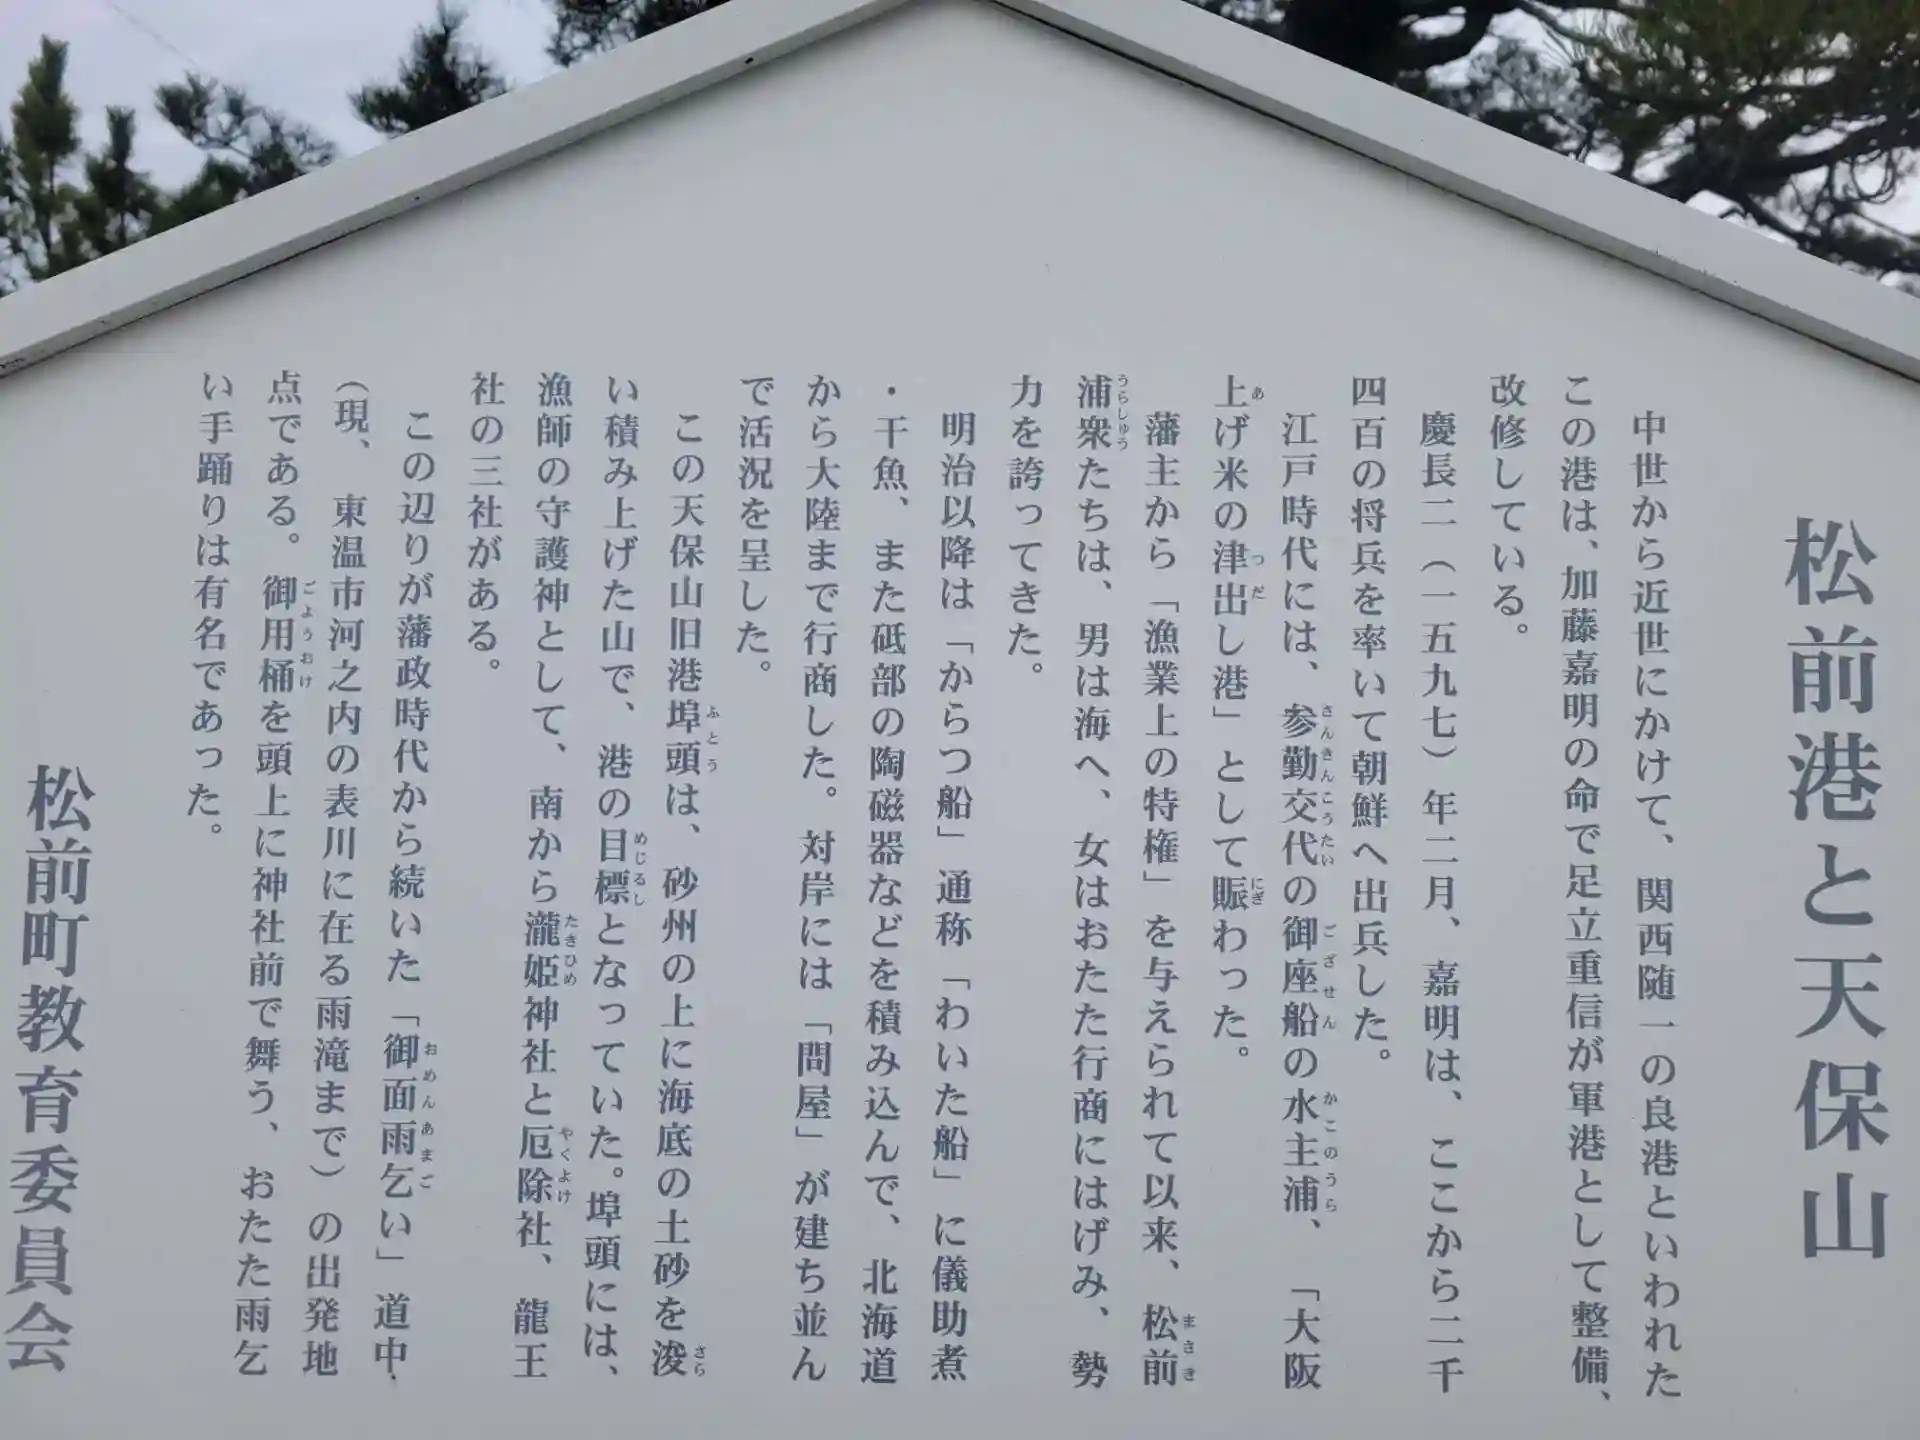 松前港と天保山
中世から近世にかけて、関西随一の良港といわれた
この港は、加藤嘉明の命で足立重信が軍港として整備、
改修している。
慶長二（一五九七）年二月、嘉明は、ここから二千
四百の将兵を率いて朝鮮へ出兵した。
江戸時代には、参勤交代の御座船の水主浦、「大阪
さんきんこうたい ござせん かこのうら
上げ米の津出し港」として賑わった。
あ つだ にぎ
藩主から「漁業上の特権」を与えられて以来、松前
まさき
浦衆たちは、男は海へ、女はおたた行商にはげみ、勢
うらしゅう
力を誇ってきた。
明治以降は「からつ船」通称「わいた船」に儀助煮
・干魚、また砥部の陶磁器などを積み込んで、北海道
から大陸まで行商した。対岸には「問屋」が建ち並ん
で活況を呈した。
この天保山旧港埠頭は、砂州の上に海底の土砂を浚
ふとう さら
い積み上げた山で、港の目標となっていた。埠頭には、
めじるし
漁師の守護神として、南から瀧姫神社と厄除社、龍王
たきひめ やくよけ
社の三社がある。
この辺りが藩政時代から続いた「御面雨乞い」道中
おめんあまご
（現、東温市河之内の表川に在る雨滝まで）の出発地
点である。御用桶を頭上に神社前で舞う、おたた雨乞
ごようおけ
い手踊りは有名であった。
松前町教育委員会